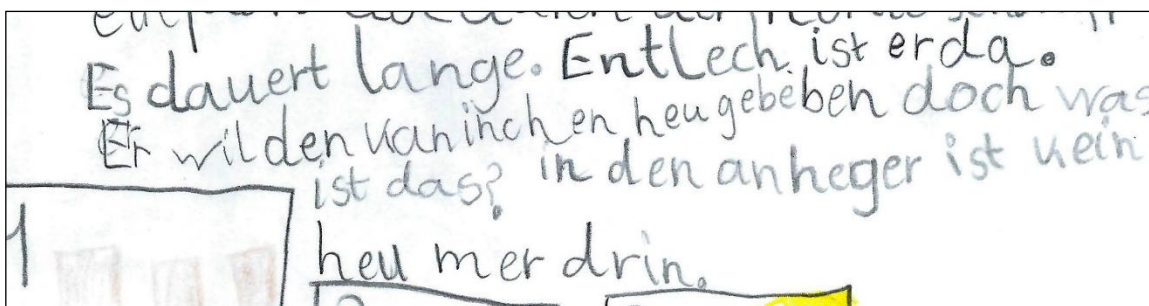 Es dauert lange. Entlech ist er da.
Er wil den kaninchen heu gebeben doch was
ist das? in den anheger ist kein
heu mer drin.
1